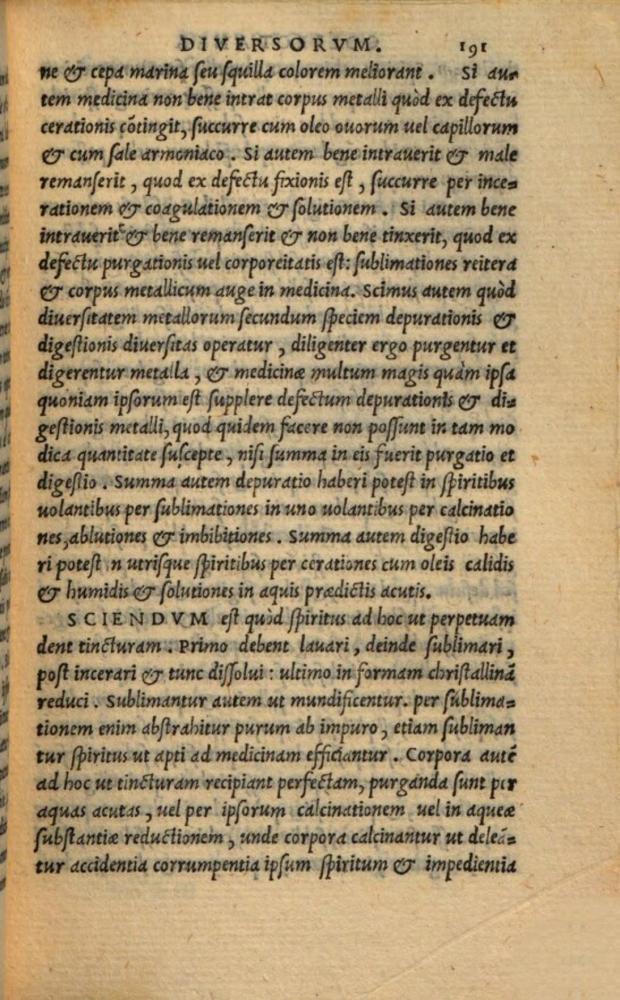 DIVERSORVM. 191
ne & cepa marina seu squilla colorem meliorant. Si au-
tem medicina non bene intrat corpus metalli quòd ex defectu
cerationis cõtingit, succurre cum oleo ouorum uel capillorum
& cum sale armoniaco. Si autem bene intrauerit & male
remanserit, quod ex defectu fixionis est, succurre per ince-
rationem & coagulationem & solutionem. Si autem bene
intrauerit & bene remanserit & non bene tinxerit, quod ex
defectu purgationis uel corporeitatis est: sublimationes reitera
& corpus metallicum auge in medicina. Scimus autem quòd
diuersitatem metallorum secundum speciem depurationis &
digestionis diuersitas operatur, diligenter ergo purgentur et
digerentur metalla, & medicinæ multum magis quàm ipsa
quoniam ipsorum est supplere defectum depurationis & di-
gestionis metalli, quod quidem facere non possunt in tam mo
dica quantitate suscepte, nisi summa in eis fuerit purgatio et
digestio. Summa autem depuratio haberi potest in spiritibus
uolantibus per sublimationes in uno uolantibus per calcinatio
nes, ablutiones & imbibitiones. Summa autem digestio habe
ri potest in utrisque spiritibus per cerationes cum oleis calidis
& humidis & solutiones in aquis prædictis acutis.
SCIENDVM est quòd spiritus ad hoc ut perpetuam
dent tincturam. Primo debent lauari, deinde sublimari,
post incerari & tunc dissolui: ultimo in formam christallinã
reduci. Sublimantur autem ut mundificentur. per sublima-
tionem enim abstrahitur purum ab impuro, etiam subliman
tur spiritus ut apti ad medicinam efficiantur. Corpora autẽ
ad hoc ut tincturam recipiant perfectam, purganda sunt per
aquas acutas, uel per ipsorum calcinationem uel in aqueæ
substantiæ reductionem, unde corpora calcinantur ut deleã-
tur accidentia corrumpentia ipsum spiritum & impedientia